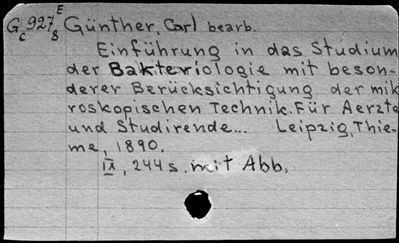 G 927 E Günther, Carl bearb.
c 8
Einführung in das Studium
der Bakteriologie mit beson-
derer Berücksichtigung der mik
roskopischen Technik. Für Aerzte
und Studirende... Leipzig, Thie-
me, 1890.
IX, 244 s. mit Abb.